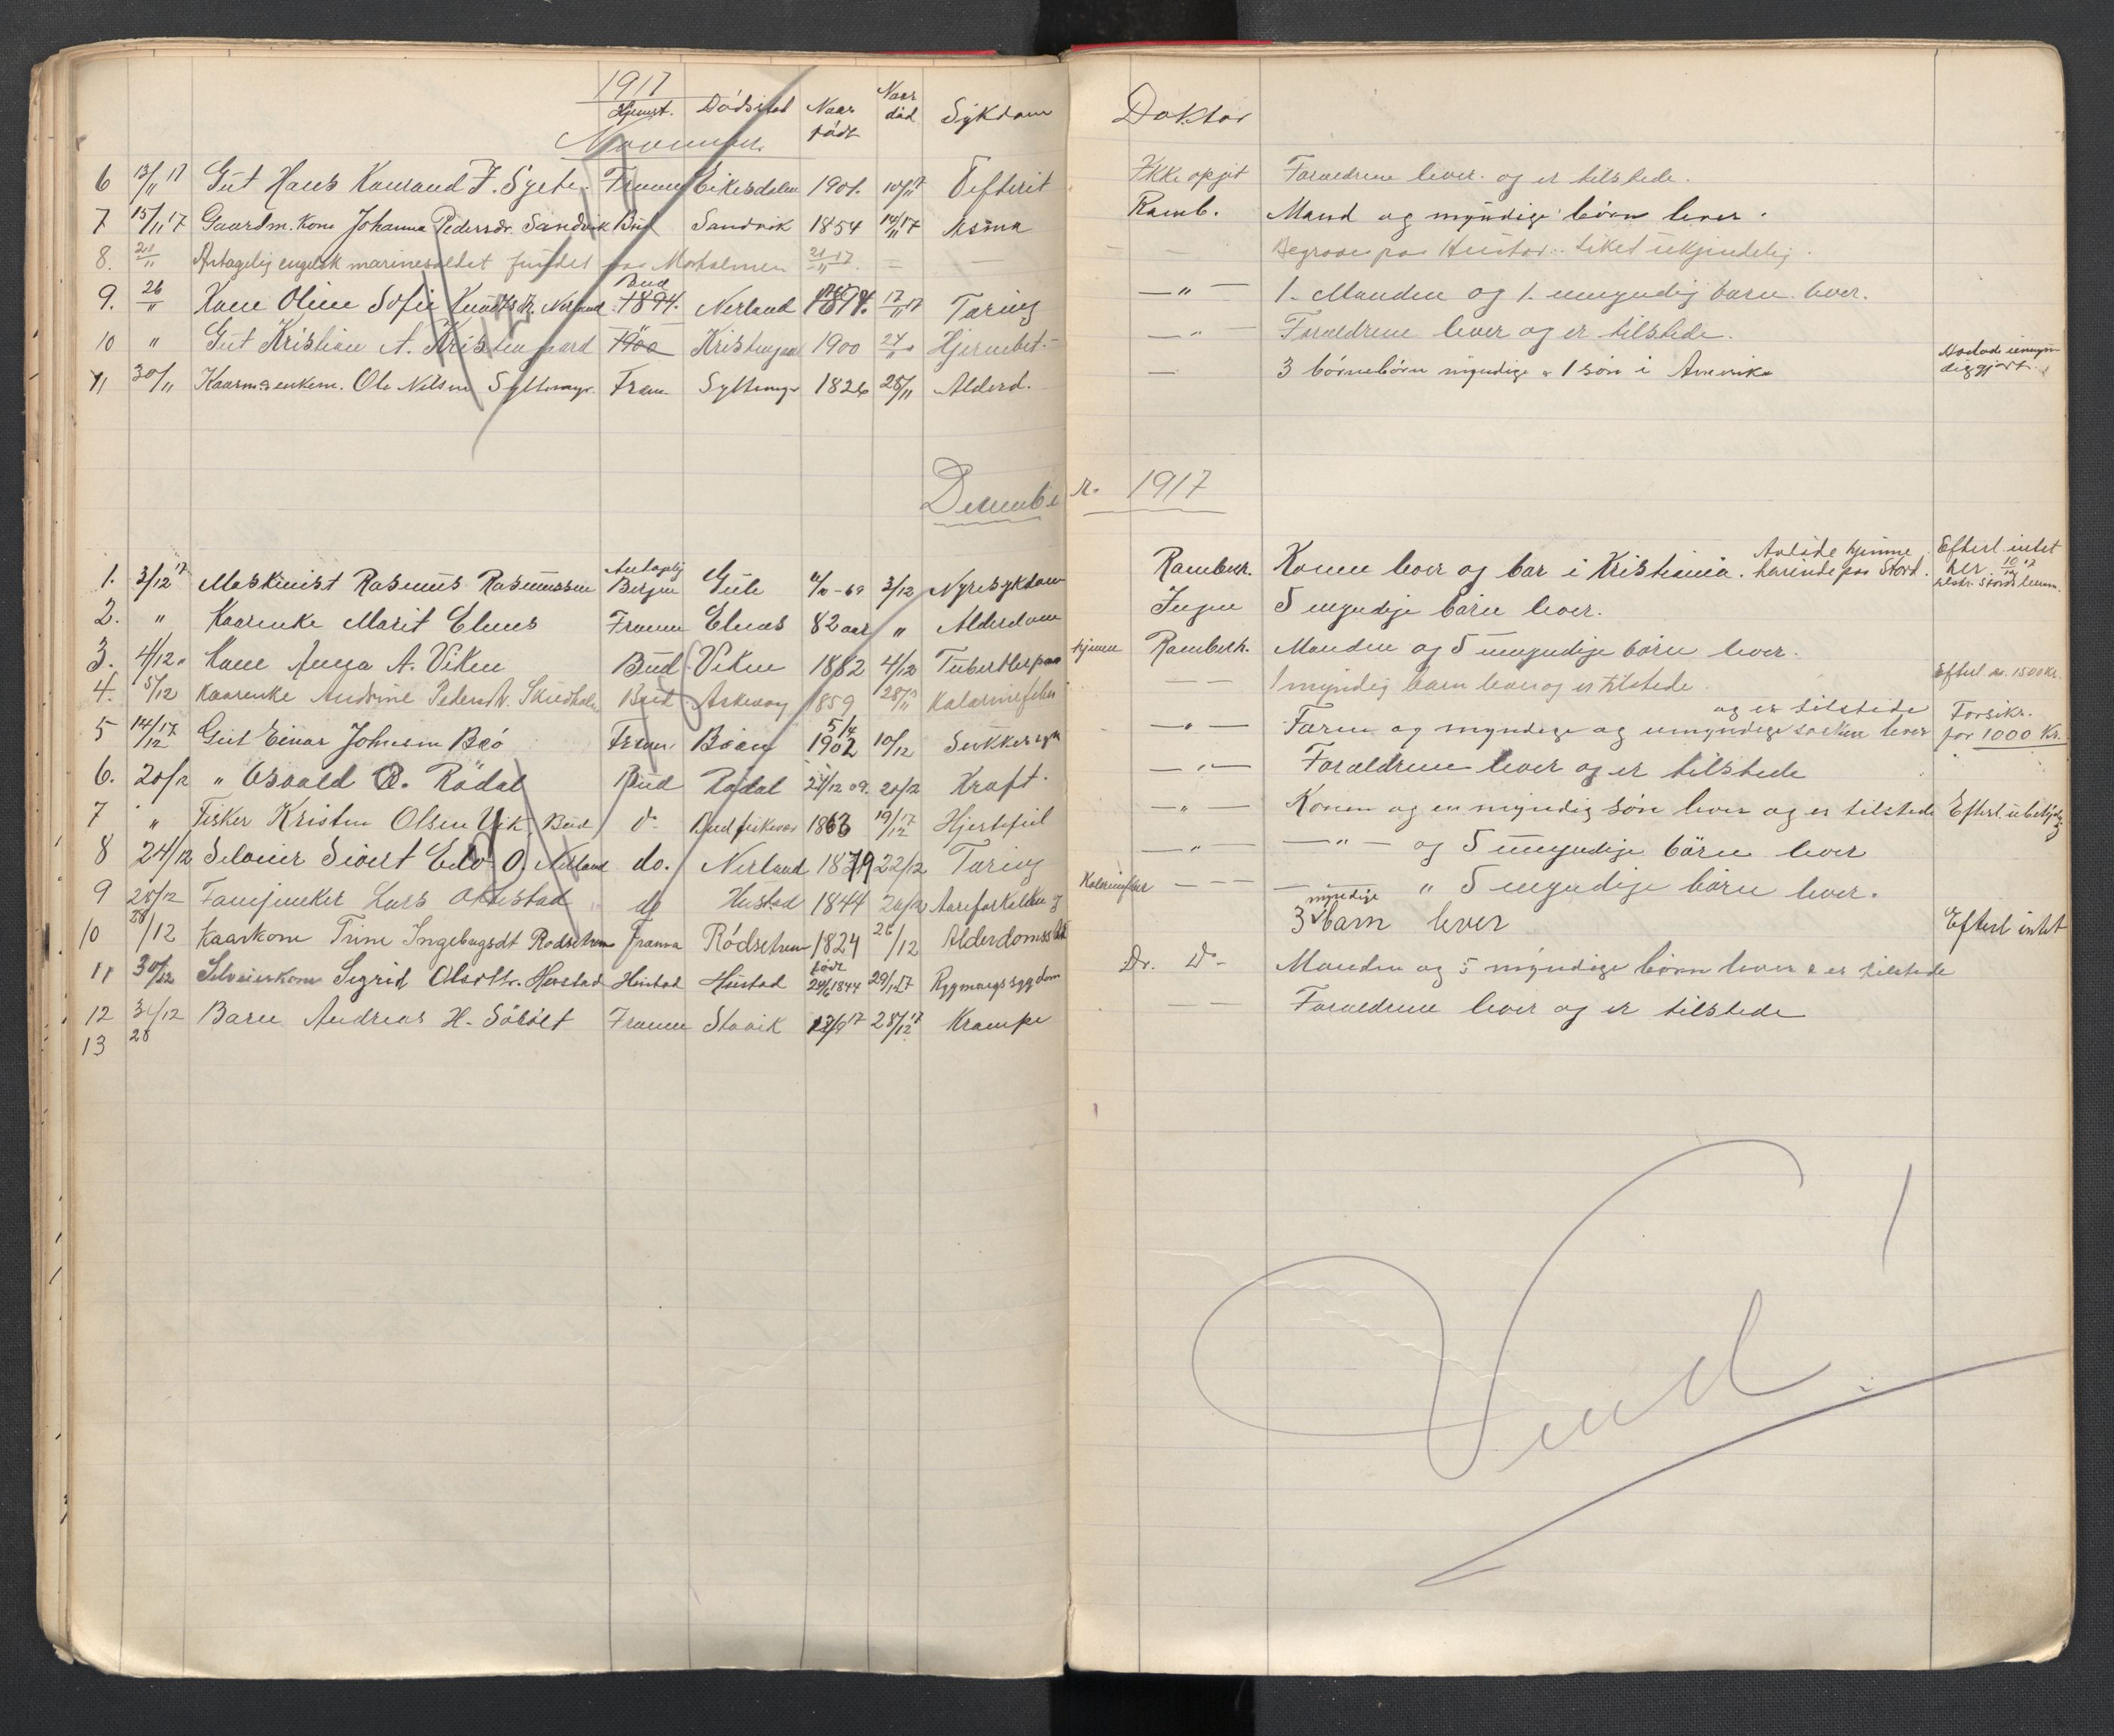 1917
Hjemst. Dödsstad Naar födt Naar död Sykdom Doktor
November
6 13/11 17 Gut Hans Konrad J. Sylte. Fræna Eikesdalen 1901. 10/11 17 Difterit Ikke opgit Forældrene lever og er tilstede.
7 15/11 17 Gaardm. kone Johanna Pedersdr. Sandvik Bud Sandvik 1854 14/11 17 Asma Ramb. Mand og myndige börn lever.
8. 21/11 Antagelig engelsk marinesoldat fundet paa 21/11 17. — — — — Begraves paa Hustad. Liket ukjendelig.
9. 26/11 Kone Oline Sofie Knudtsdtr. Nerland Bud 1894. Nerland 1894. 17/11 17 Tæring — " — 1. Manden og 1. umyndig barn lever.
10 " Gut Kristian A. Kristengaard " 1900 Kristengaard 1900 24/11 Hjernebet. — " — Forældrene lever og er tilstede.
11 30/11 Kaarm. enkem. Ole Nilsen Syltemyr. Fræn. Syltemyr 1826 25/11 Alderd. — 3 börnebörn myndige & 1 sön i Amerika
December. 1917
1. 3/12 17 Maskinist Rasmus Rasmussen Antagelig Bergen Gule 4/10 - 69 3/12 Nyresykdom Rambech. Konen lever og bor i Kristiania. Avlöde hjemmehörende paa Stord. Efterl. intet her. 10/12 17
2. " Kaarenke Marit Elnes Fræna Elnes 82 aar " Alderdom Jngen 5 myndige börn lever.
3. 4/12 " Kone Anna A. Viken Bud Viken 1882 4/12 hjemme Rambech. Manden og 5 umyndige börn lever.
4. 5/12 Kaarenke Andrine Pedersdtr. Bud Askevaag 1859 28/11 — — 1 myndig barn lever og er tilstede. Efterl. ca. 1500 kr.
5 14/12 17 Gut Einar Johnsen Böö Fræna Böen 5/4 1902 10/12 Sukkersyk — " — Faren og myndige og umyndige sösken lever og er tilstede Forsikr. for 1000 Kr.
6. 20/12 " Osvald O. Rödal Bud Rödal 24/12 09. 20/12 Kræft. — " — Forældrene lever og er tilstede
7 " Fisker Kristen Olsen Vik, Bud do Bud fiskevær 1863 19/12 17 Hjertefeil — " — Konen og en myndig sön lever og er tilstede
8 24/12 Selveier Sivert Edv. O. Nerland do. Nerland 1879 22/12 Tæring — " — — " — og 5 umyndige börn lever
9 28/12 Lars Hustad do Hustad 1844 26/12 Aareforkalkning — — — — " 5 myndige börn lever.
10 28/12 Kaarkone Trine Ingebrigtsdt Rödsetren Fræna Rödsetren 1824 26/12 3 myndige barn lever Efterl intet
11 30/12 Selveierkone Sigrid Olsdtr. Hustad Hustad Hustad född 24/6 1844 29/12 17 Rygmargssygdom Dr. Do- Manden og 5 myndige börn lever & er tilstede
12 31/12 Barn Andreas H. Fræna Stavik 13/9 17 28/12 17 Krampe — — Forældrene lever og er tilstede
13 28
Vend!